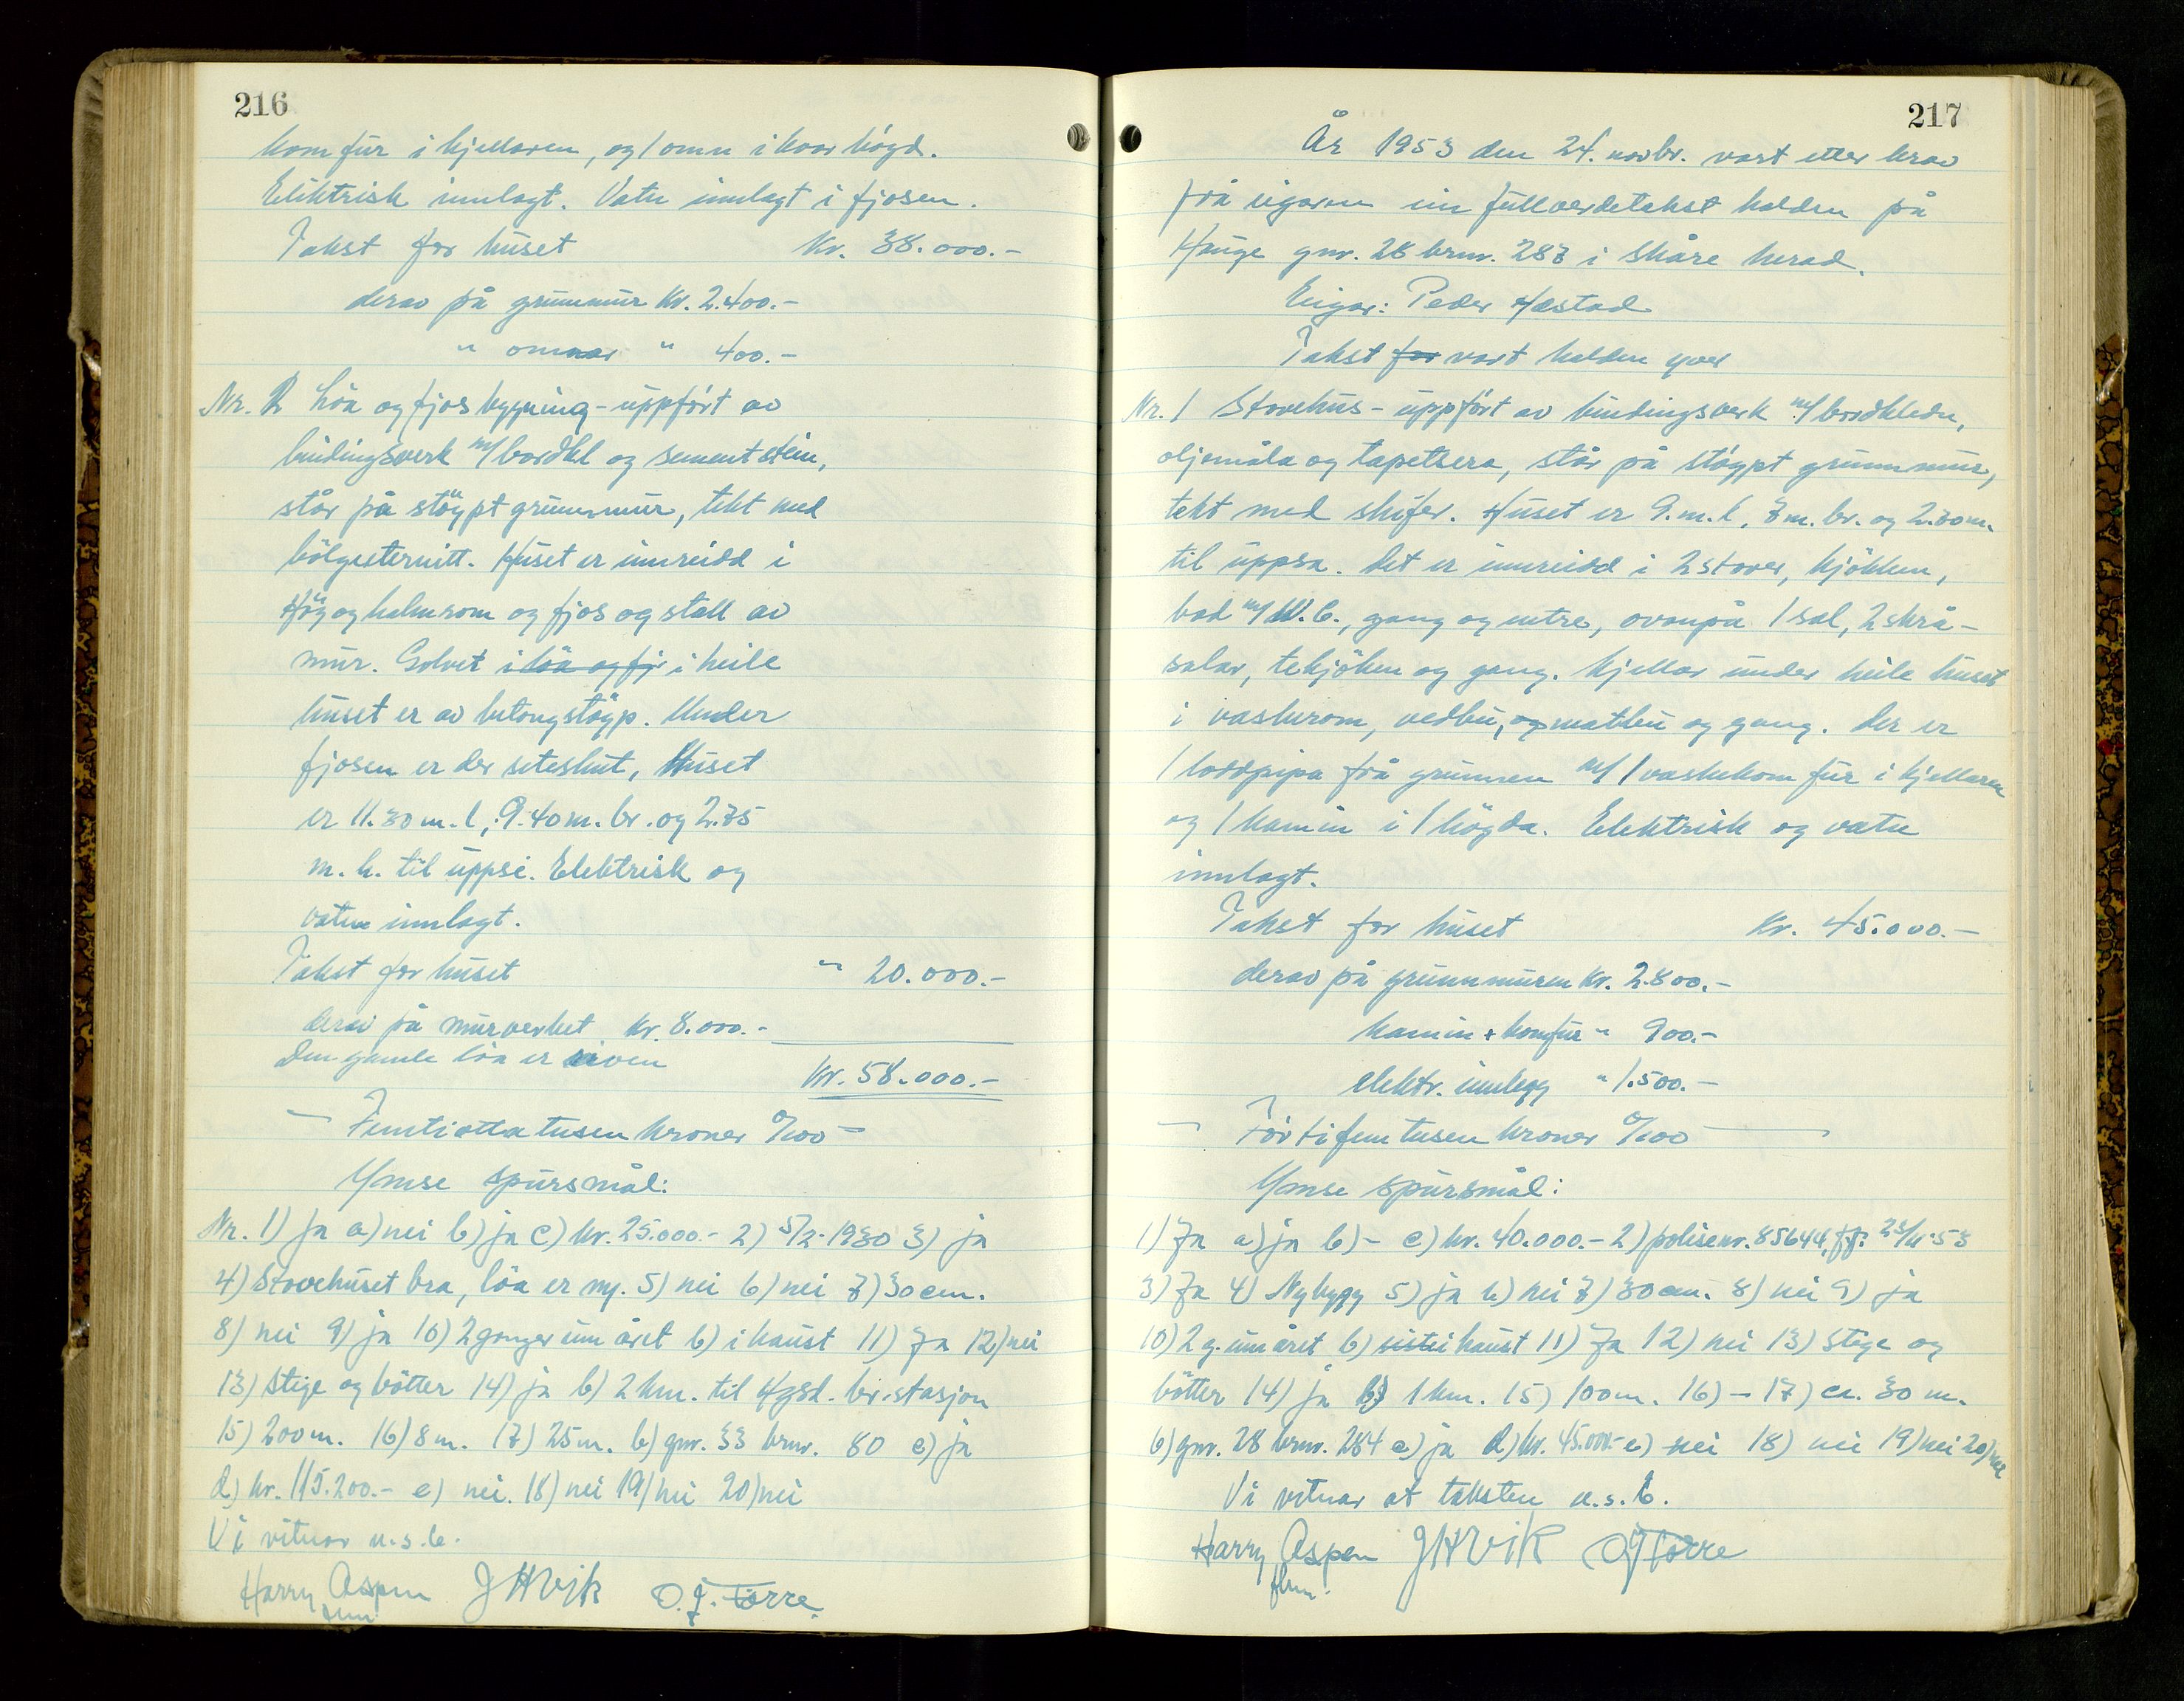 216
komfur i kjellaren, og 1 omn i kvar høgd.
Elektrisk innlagt. Vatn innlagt i fjosen.
Takst for huset Kr. 38.000.-
derav på grunnmur Kr. 2.400.-
" omnar " 400.-
Nr. 2 Löa og fjosbygning - uppfört av
bindingsverk m/bordkl og sementstein,
står på stöypt grunnmur, tekt med
bölgeeternitt. Huset er innreidd i
Höy og halmrom og fjos og stall av
mur. Golvet i löa og fj i heile
huset er av betongstöyp. Under
fjosen er der seteskut, Huset
er 11.30 m. l, 9.40 m. br. og 2.75
m. h. til uppsi. Elektrisk og
vatn innlagt.
Takst for huset " 20.000.-
derav på murverket Kr. 8.000.-
Den gamle löa er riven
Kr. 58.000.-
- Femtiåtta tusen kroner 0/100 -
Ymse spursmål:
Nr. 1) ja a) nei b) ja c) kr. 25.000.- 2) 5/2-1930 3) ja
4) Stovehuset bra, löa er ny. 5) nei 6) nei 7) 30 cm.
8) nei 9) ja 10) 2 gonger um året b) i haust 11) Ja 12) nei
13) Stige og bötter 14) ja b) 2 km. til Hgsd. br.stasjon
15) 200 m. 16) 8 m. 17) 25 m. b) gnr. 33 brnr. 80 c) ja
d) kr. 115.200.- e) nei. 18) nei 19) nei 20) nei
Vi vitnar u.s.b.
Harry Aspen J H Vik O. J. Tørre.
fm
217
År 1953 den 24. novbr. vart etter krav
frå eigaren ein fullverdetakst halden på
Hauge gnr. 28 brnr. 287 i Skåre herad.
Eigar: Peder Hæstad
Takst for vart halden yver
Nr. 1 Stovehus - uppfört av bindingsverk m/bordkledn,
oljemåla og tapetsera, står på stöypt grunnmur,
tekt med skifer. Huset er 9. m. l, 7 m. br. og 2.70 m.
til uppsa. Det er innreidd i 2 stover, kjökken,
bad m/W.C., gang og entre, ovanpå 1 sal, 2 skrå-
salar, tekjöken og gang. Kjellar under heile huset
i vaskerom, vedbu, og matbu og gang. Der er
1 loddpipa frå grunnen m/ 1 vaskekomfur i kjellaren
og 1 kamin i 1 högda. Elektrisk og vatn
innlagt.
Takst for huset Kr. 45.000.-
derav på grunnmuren Kr. 2.800.-
kamin + komfur " 900.-
elektr. innlegg " 1.500.-
- Førtifem tusen kroner 0/100 -
Ymse spursmål:
1) Ja a) ja b) - c) kr. 40.000.- 2) polisenr. 85644, ff. 23/11-53
3) Ja 4) Nybygg 5) ja 6) nei 7) 30 cm. 8) nei 9) ja
10) 2 g. um året b) sistei haust 11) Ja 12) nei 13) Stige og
bötter 14) ja b) 1 km. 15) 100 m. 16) - 17) ca. 30 m.
b) gnr. 28 brnr. 284 c) ja d) kr. 45.000.- e) nei 18) nei 19) nei 20) nei
Vi vitnar at taksten u.s.b.
Harry Aspen J H Vik O J Tørre
fm.